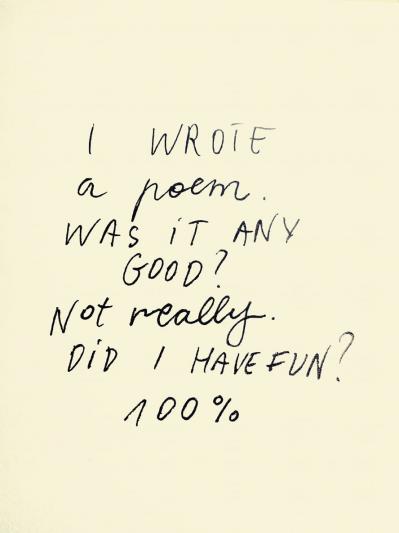 I WROTE
a poem.
WAS iT ANY
GOOD?
Not really.
DiD I HAVE FUN?
100%